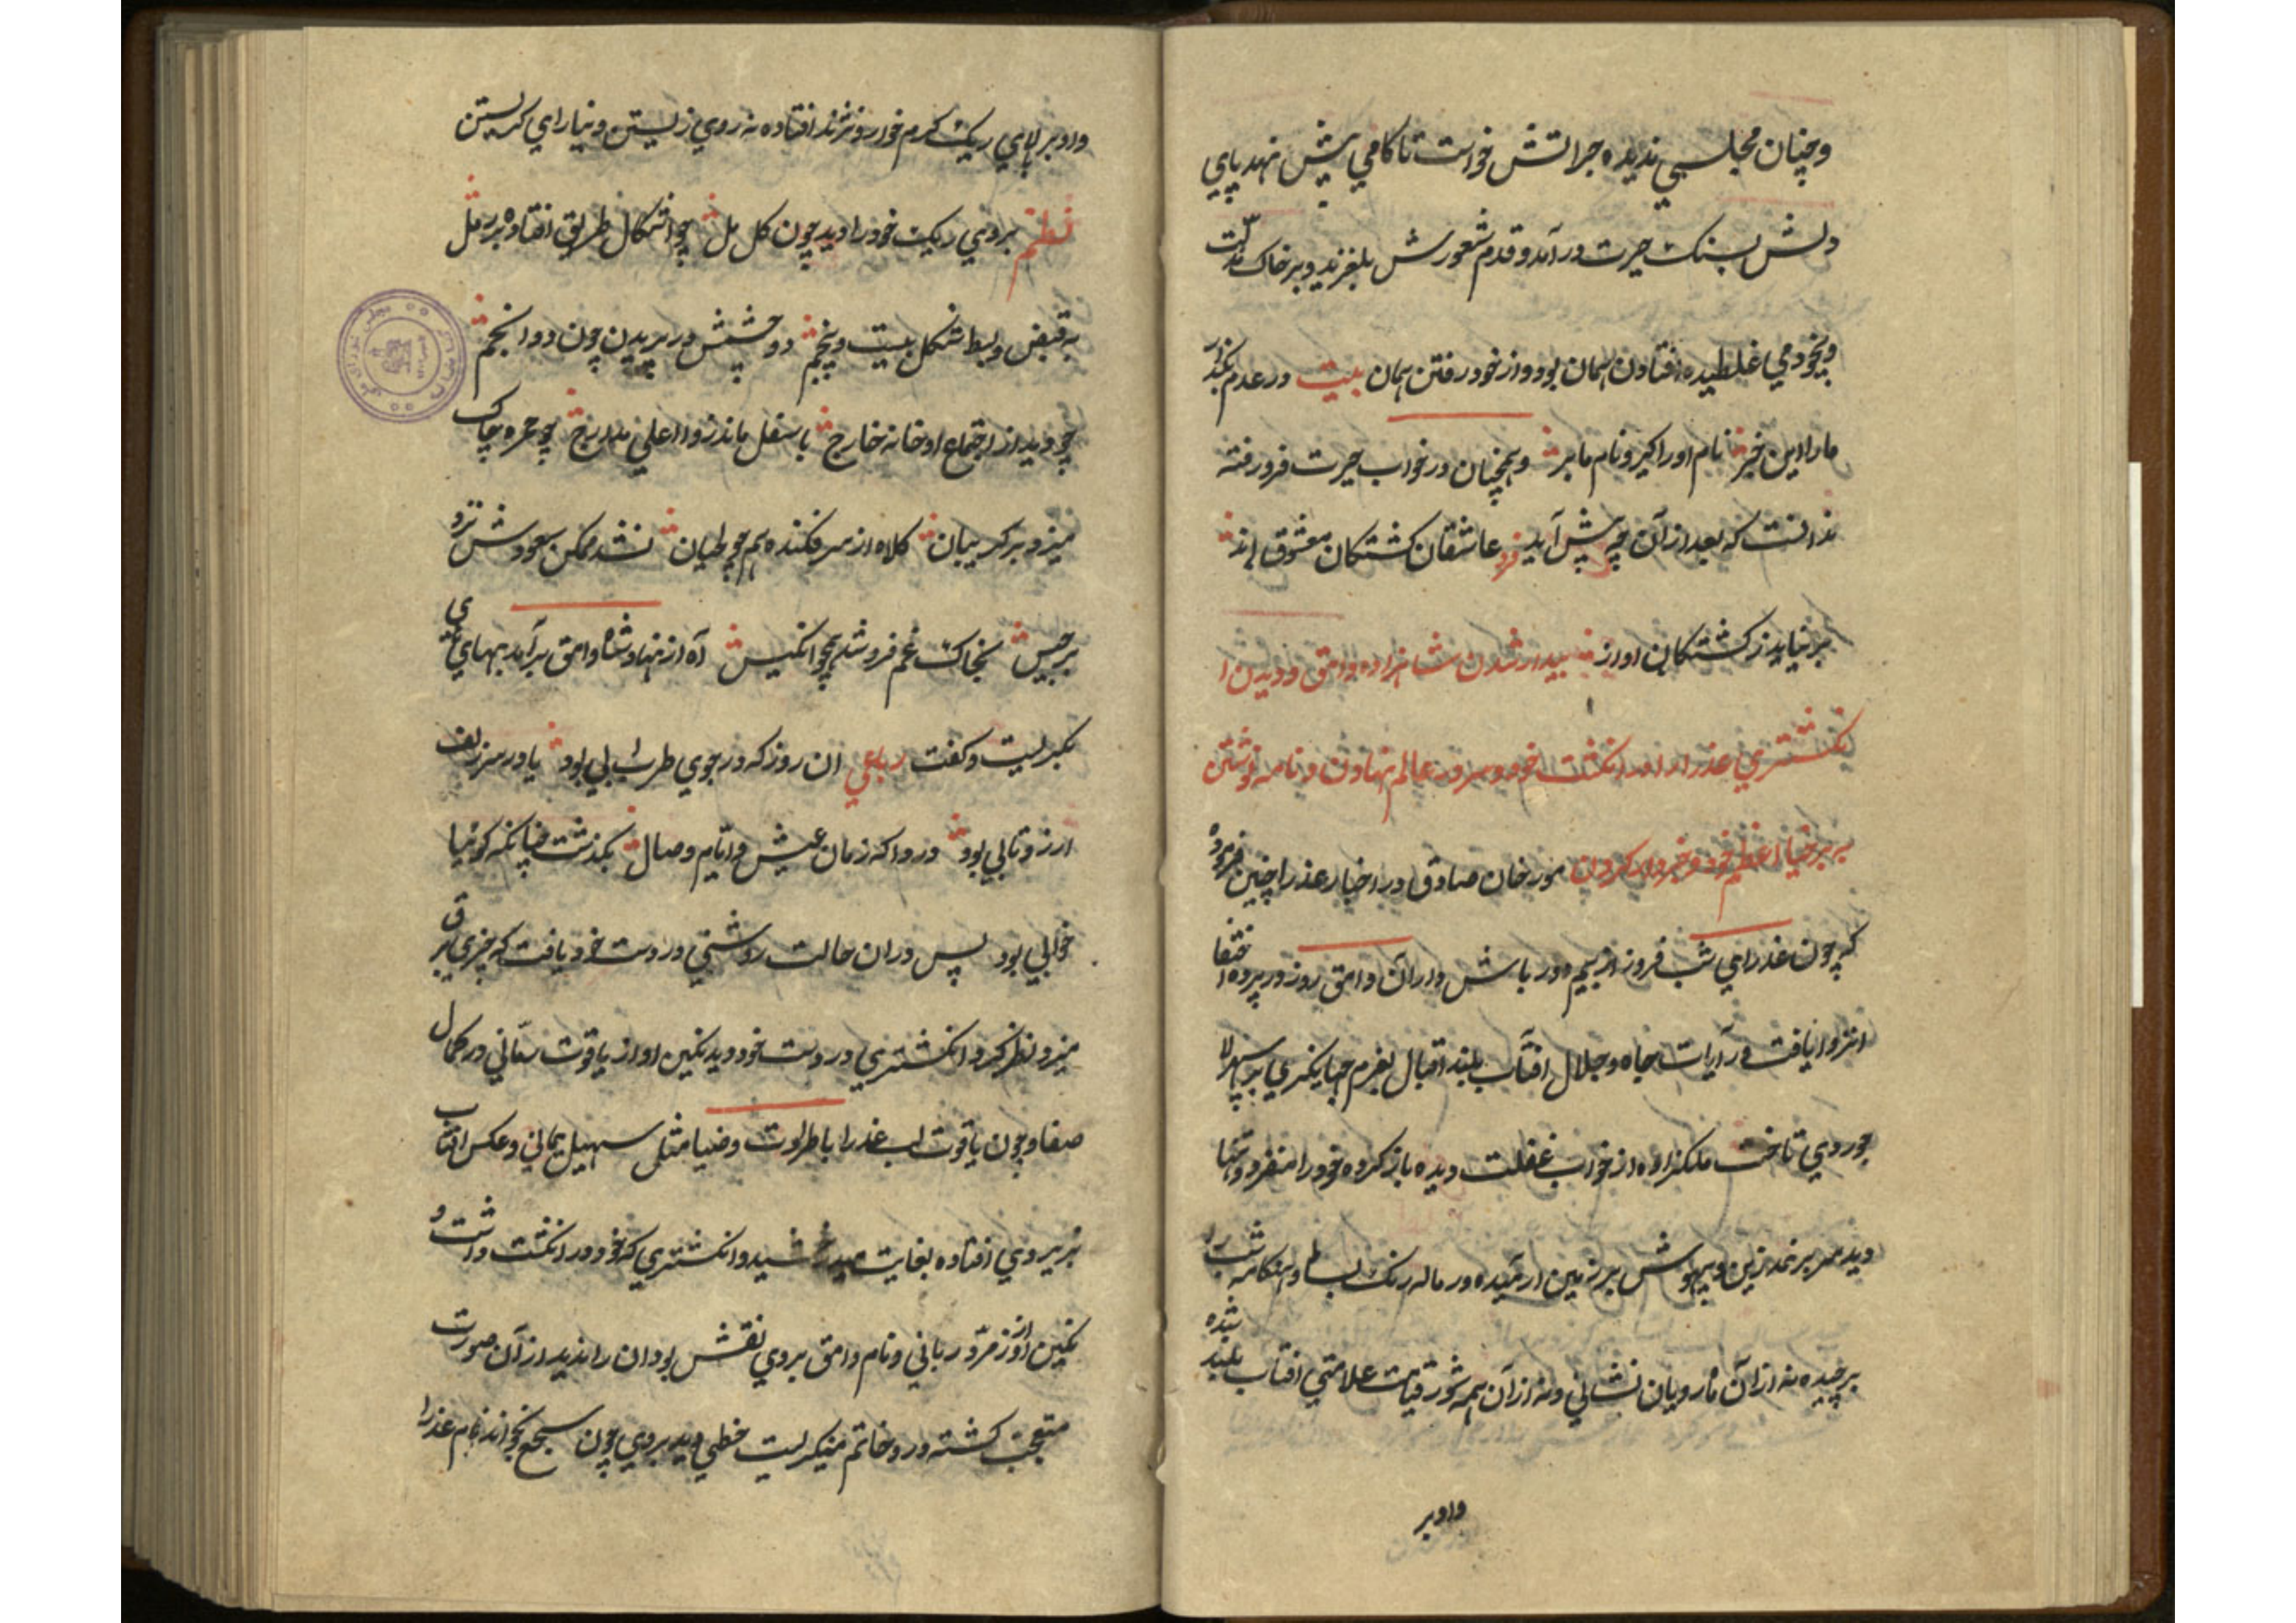 وچنان مجلسی ندیده جراتش خواست تا کامی پیش نهد پای
دلش بسنک حیرت درآمد و قدم شعورش بلغزید و برخاک مذلت
وبیخودی غلطیده افتادن همان بود و از خود رفتن همان بیت در عدم بگذار
مارا این خبر نام او را گیر و نام ما ببر وهمچنان در خواب حیرت فرورفته
ندانست که بعد از آن چه پیش آید فرد عاشقان کشتکان معشوق اند
برنیاید ز کشتکان آواز بیدار شدن شاهزاده وامق و دیدن ا
نکشتری عذرا را در انکشت خود و سر در عالم نهادن و نامه نوشتن
به برخیا اعظم خود و خبردار کردن مورخان صادق در اخبار عذرا چنین فرموده
که چون عذرای شب فروز از بیم دورباش داران وامق روز در پرده اختفا
انزوا یافت و رآیات جاه و جلال افتاب بلند اقبال بعزم جهانکیری بر سپهر لا
جوردی تاخت ملکزاده از خواب غفلت دیده باز کرده خود را منفرد و تنها
دید سر بر نمد زین و بیهوش بر زمین ارمیده و رماله رنک بساط و هنکامه شب را
برچیده نه از آن ماه رویان نشانی و نه از آن همه شور قیامت علامتی افتاب بلند شده
واو بر
واو بر بالای ریک کرم خوار و نژند افتاده نه روی زیستن و نه یارای کریستن
نظم بروی ریک خود را دید چون کل مل چو اشکال طریق افتاده بر رمل
به قبض و بسط شکل بیست و پنجم دو چشمش در پریدن چون دو انجم
چو دید از اجتماع او خانه خارج باسفل ماند زو اعلی مدارج چو حمره چاک
میزد بر کریبان کلاه از سر فکنده هم چو لحیان نشد ممکن سعودش نزد
برجیس بخاک غم فرو شد همچو انکیس آه از نهاد شاه وامق برآمد بهای های
بکریست و کفت رباعی ان روز که در جوی طرب ابی بود یا در سر زلف
ارزو تابی بود دردا که زمان عیش و ایام وصال بکذشت چنانکه کوئیا
خوابی بود پس دران حالت روشنی در دست خود یافت که چیزی برق
میزد نظر کرد انکشتری در دست خود دید نکین او از یاقوت رمّانی در کمال
صفا و چون یاقوت لب عذرا با طراوت و ضیا مثل سهیل یمانی و عکس افتاب
بر بروی افتاده بغایت میدرخشید و انکشتری که خود در انکشت داشت و
نکین او از زمرّد ربانی و نام وامق بروی نقش بود ان را ندید از آن صورت
متعجب کشته در و خاتم مینکریست خطی دید بروی چون سجع بخواند نام عذرا